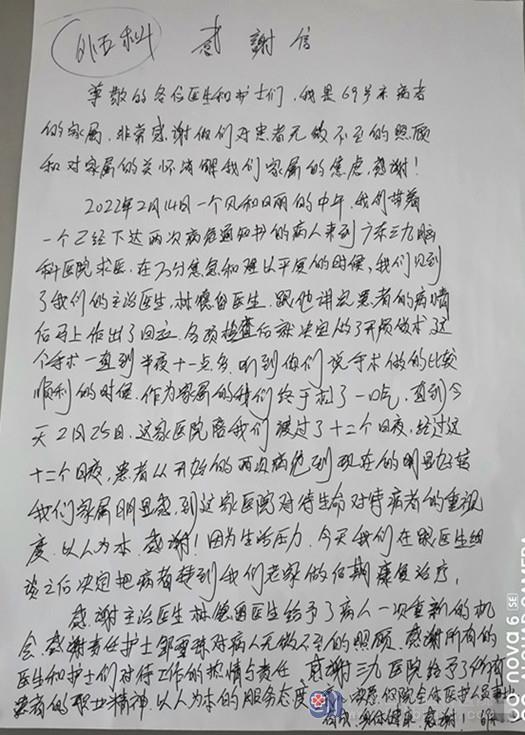 外五科
感謝信
尊敬的各位医生和护士们，我是69岁未病者
的家属。非常感谢你们对患者无微不至的照顾
和对家属的关怀消解我们家属的焦虑，感谢！
2022年2月14日一个风和日丽的中午，我们带着
一个已经下达两次病危通知书的病人来到广东三九脑
科医院求医，在万分焦急和难以平复的时候，我们见到
了我们的主治医生，林德留医生，跟他讲完患者的病情
后马上作出了回应，各项检查后就决定做了开颅手术 这
个手术一直到半夜十一点多，听到你们说手术做的比较
顺利的时候，作为家属的我们终于松了一口气，直到今
天2月25日，这家医院陪我们渡过了十二个日夜，经过这
十二个日夜，患者从开始的两次病危到现在的明显好转
我们家属明显感到这家医院对待生命对待病者的重视
度。以人为本，感谢！因为生活压力，今天我们在跟医生组
谈之后决定把病者转到我们老家做后期康复治疗，
感谢主治医生林德留医生给予了病人一次重新的机
会，感谢责任护士邹 珠对病人无微不至的照顾，感谢所有的
医生和护士们对待工作的热情与责任 感谢三九医院给予了所有
患者的职业精神，以人为本的服务态度 祝愿你院全体医护人员事业
有成，身体健康，感谢！
nova 6 SE